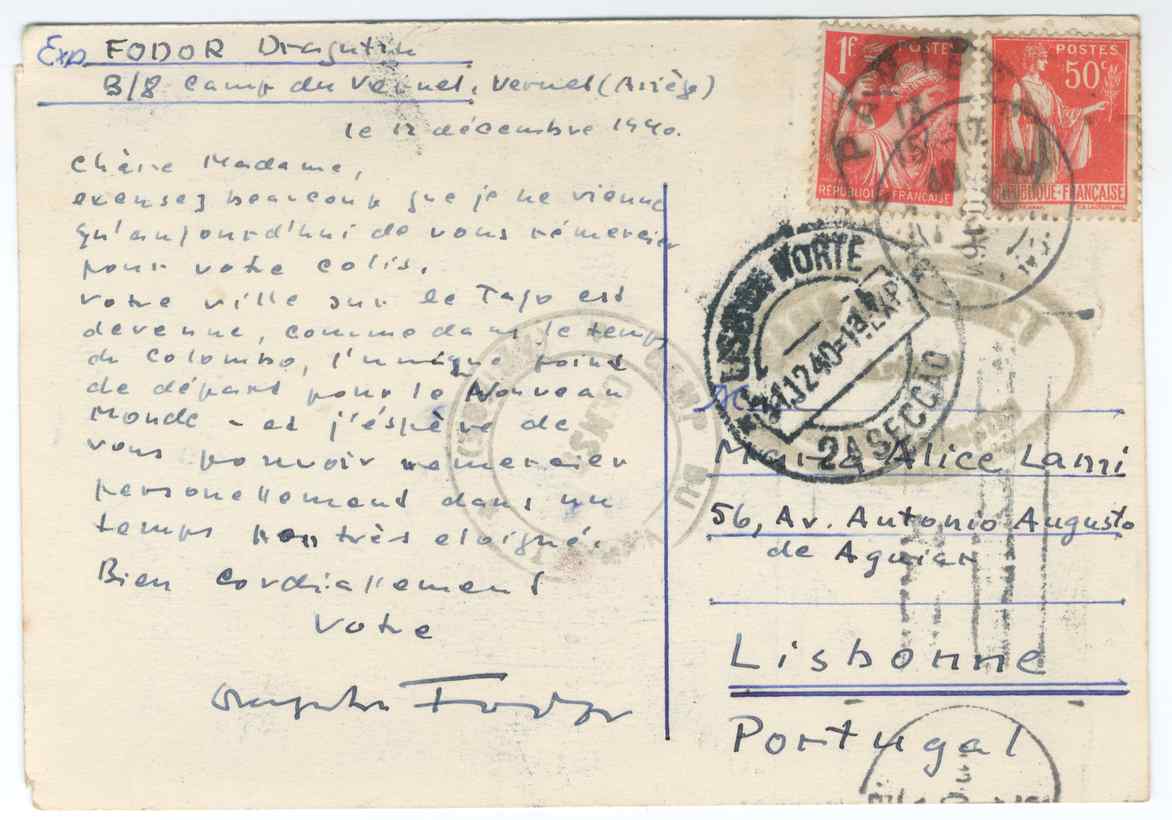 Exp. FODOR Dragutin
B/8 Camp du Vernet, Vernet (Ariège)
le 12 décembre 1940.
Chère Madame,
excusez beaucoup que je ne vienne
qu'aujourd'hui de vous rémercier
pour votre colis.
Votre ville sur le Tajo est
devenue, comme dans le temps
de Colombo, l'unique point
de départ pour le Nouveau
Monde - et j'éspère de
vous pouvoir remercier
personellement dans un
temps non très eloigné.
Bien cordiallement
Votre
Dragutin Fodor
1F POSTES
RÉPUBLIQUE FRANÇAISE
POSTES
50c
RÉPUBLIQUE-FRANÇAISE
PAMIERS
LISBOA NORTE
12.40-1
2A SECCÃO
CAMP DU
Alice Lami
56, Av. Antonio Augusto
de Aguiar
Lisbonne
Portugal